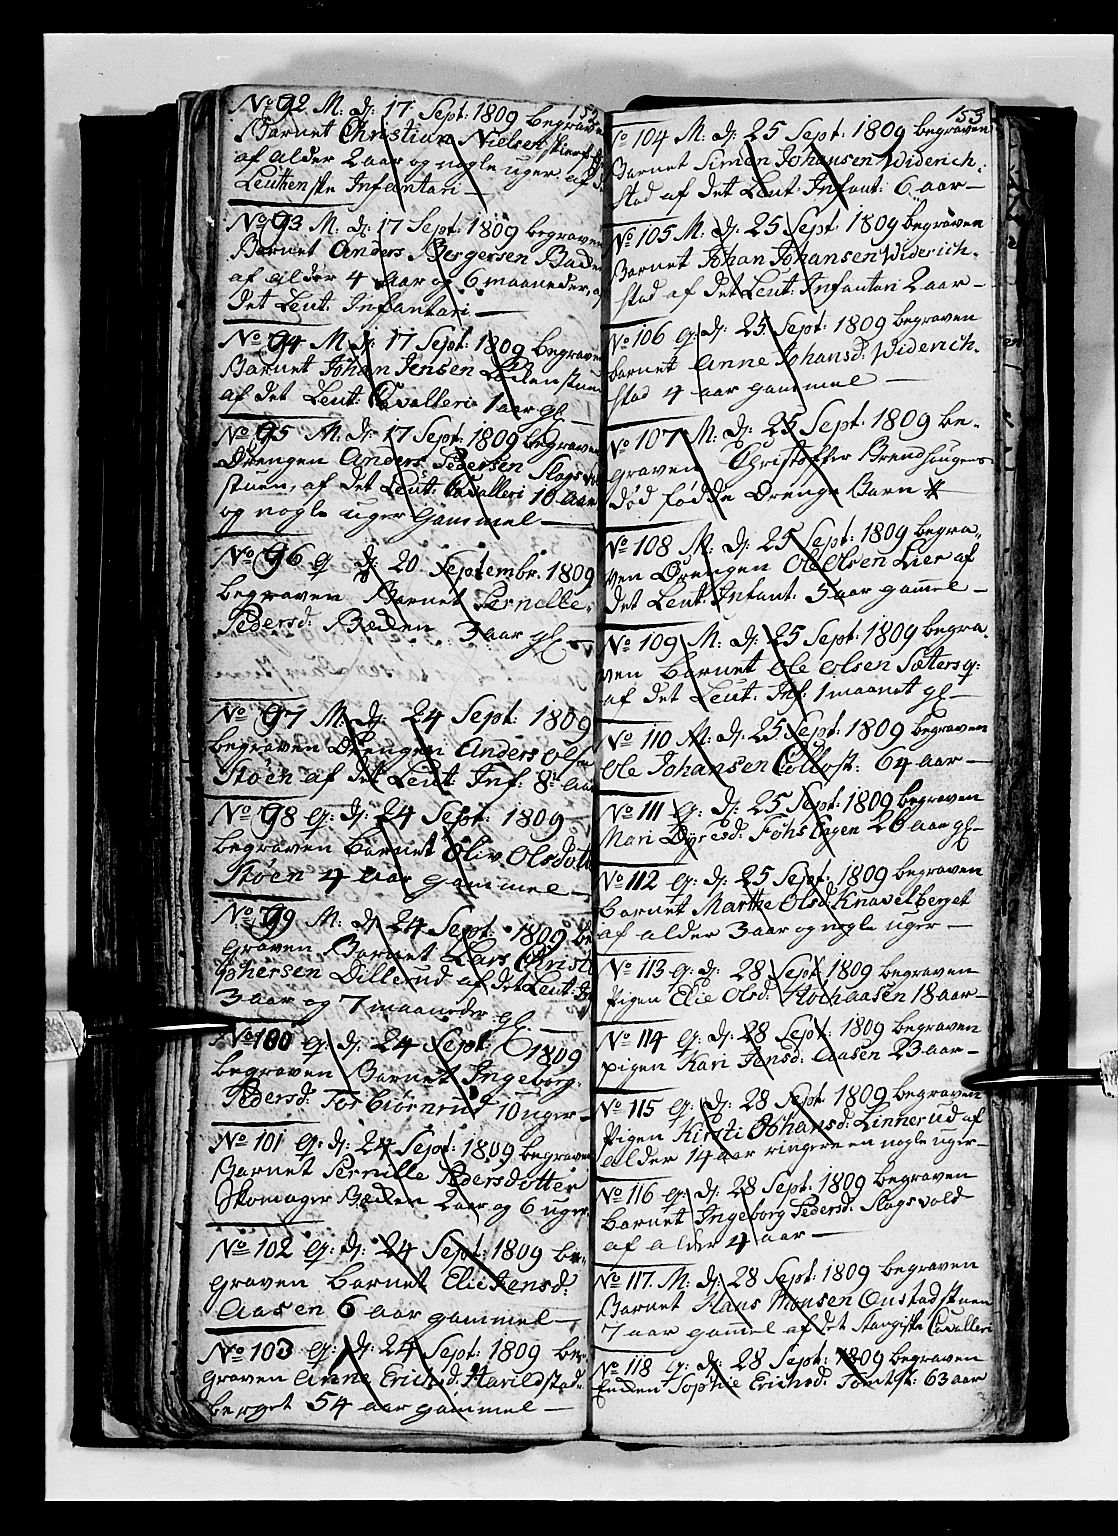 152
No 92 M. d: 17 Sept. 1809 begraven
Barnet Christian Nielsen
af alder 2 aar og nogle uger af d
Leutenste Infantari —
No 93 M: d: 17 Sept: 1809 begraven
Barnet Anders Bergersen Baden
af alder 4 Aar og 6 maaneder, af
det Leut: Infantari —
No 94 M: d: 17 Sept: 1809 begraven
Barnet Johan Jensen stuen
af det Leut: Cavalleri 1 aar gl —
No 95 M. d: 17 Sept: 1809 begraven
Drengen Anders Pedersen Slagsvol
stuen, af det Leut: Cavalleri 10 Aar
og nogle uger gammel —
No 96 q d: 20 Septembr. 1809
begraven Barnet Pernille
Pedersd: Bæden 3 aar gl —
No 97 M. d: 24 Sept: 1809
begraven Drengen Anders Olsen
Støen af det Leut: Inf: 8: Aar
No 98 q: d: 24 Sept: 1809
begraven barnet Oliv Olsdott
Støen 4 Aar gammel —
No 99 M. d: 24 Sept: 1809 be
graven Barnet Lars Christ
ophersen Dillerud af det Leut: In
3 aar og 7 maaneder gl —
No 100 q: d: 24 Sept: 1809
begraven Barnet Ingeborg
Pedersd: Torbiørnrud 10 uger —
No 101 q: d: 24 Sept: 1809 begraven
Barnet Pernille Pedersdotter
Skomager Bæden 2 aar og 6 uger.
No 102 q: d: 24 Sept: 1809 be-
graven barnet Elie Jensd:
Aasen 6 aar gammel —
No 103 q: d: 24 Sept: 1809 be-
graven Anne Erichsd: Harildstad-
berget 54 aar gammel —
153
No 104 M: d: 25 Sept: 1809 begraven
Barnet Simen Johansen Widerich-
stad af det Leut: Infant: 6 aar —
No 105 M: d: 25 Sept: 1809 begraven
Barnet Johan Johansen Widerich-
stad af det Leut: Infantari 2 aar —
No 106 q: d: 25 Sept: 1809 begraven
barnet Anne Johansd: Widerich-
stad 4 aar gammel —
No 107 M: d: 25 Sept: 1809 be-
graven Christoffer Brendhungens
død fødde Drenge Barn
No 108 M: d: 25 Sept: 1809 begra-
ven Drengen Ole Olsen Lier af
det Leut: Infant: 5 aar gamel —
No 109 M: d: 25 Sept: 1809 begra-
ven barnet Ole Olsen Sætersq:
af det Leut: Inf: 1 maanet gl —
No 110 M: d: 25 Sept: 1809 begraven
Ole Johansen 64 aar —
No 111 q: d: 25 Sept: 1809 begraven
Mari Dyresd: Engen 26 aar gl —
No 112 q: d: 25 Sept: 1809 begraven
barnet Marthe Olsd: Knavelberget
af alder 3 aar og nogle uger —
No 113 q: d: 28 Sept 1809 begraven
Pigen Elie Olsd: 18 aar —
No 114 q: d: 28 Sept: 1809 begraven
pigen Kari Jensd: Aasen 23 aar —
No 115 q: d: 28 Sept 1809 begraven
Pigen Kirsti Johansd: Linnerud af
alder 14 aar ringere en nogle uger —
No 116 q: d: 28 Sept: 1809 begraven
barnet Ingeborg Pedersd: Slagsvold
af alder 4 aar —
No 117. M. d: 28 Sept: 1809 begraven
Barnet Hans Monsen Oustadstuen
7 aar gamel af det Stangiske Cavalleri
No 118 q: d: 28 Sept: 1809 begraven
Enken Sophie Erichsd: Tomtst: 63 aar